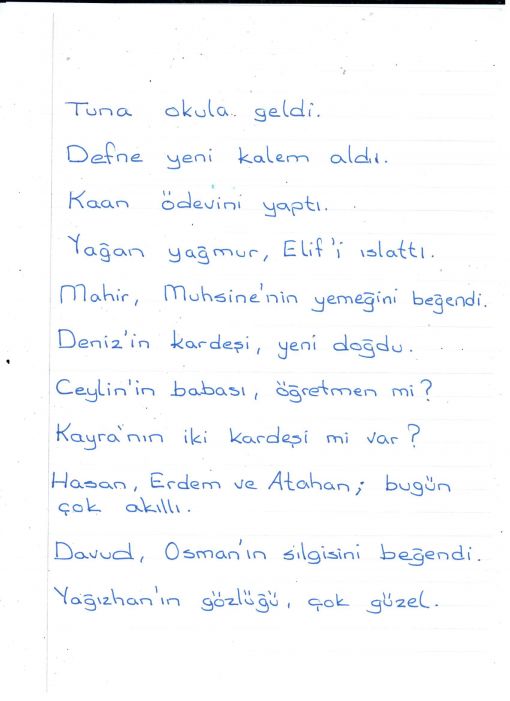 Tuna okula geldi.
Defne yeni kalem aldı.
Kaan ödevini yaptı.
Yağan yağmur, Elif'i ıslattı.
Mahir, Muhsine'nin yemeğini beğendi.
Deniz'in kardeşi, yeni doğdu.
Ceylin'in babası, öğretmen mi?
Kayra'nın iki kardeşi mi var?
Hasan, Erdem ve Atahan; bugün
çok akıllı.
Davud, Osman'ın silgisini beğendi.
Yağızhan'ın gözlüğü, çok güzel.